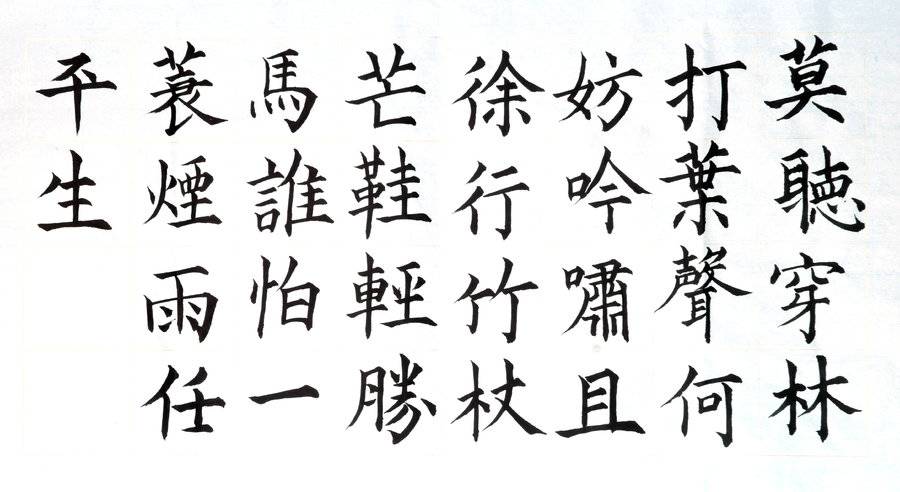 莫聽穿林
打葉聲何
妨吟嘯且
徐行竹杖
芒鞋輕勝
馬誰怕一
蓑煙雨任
平生